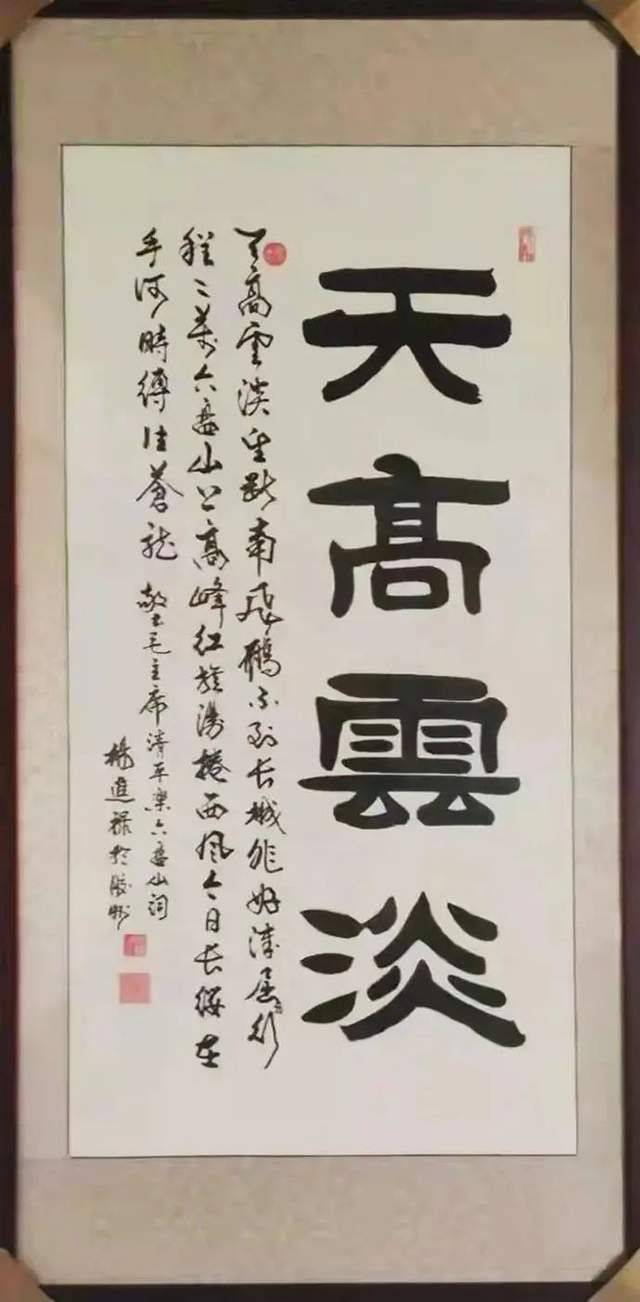 天高雲淡
天高雲淡望斷南飛雁不到长城非好漢屈指行
程二萬六盤山上高峰红旗漫捲西风今日长缨在
手何時縛住蒼龍 敬书毛主席清平樂六盤山词
楊進禄於胶州